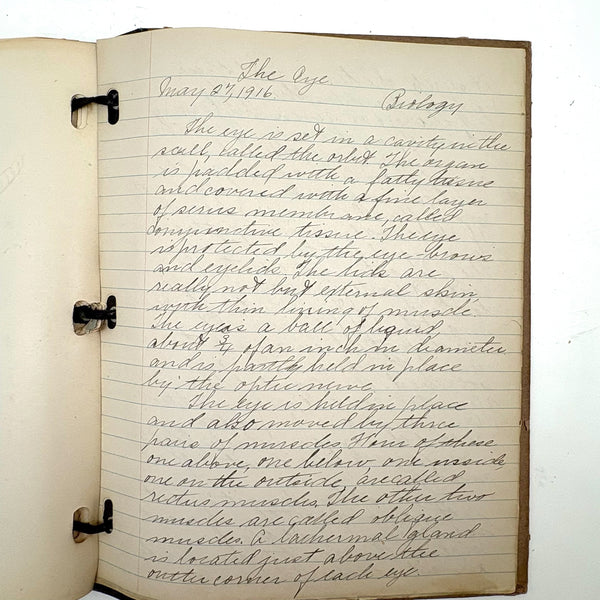 The Eye
May 27, 1916.
Biology
The eye is set in a cavity in the
scull, called the orbit. The organ
is padded with a fatty tissue
and covered with a fine layer
of serus membrane, called
conjunctive tissue. The eye
is protected by the eye-brows
and eyelids. The lids are
really not but external skin,
with thin lining of muscle.
The eye is a ball of liquid,
about 3/4 of an inch in diameter
and is partly held in place
by the optic nerve.
The eye is held in place
and also moved by three
pairs of muscles. Four of these
one above, one below, one inside
one on the outside, are called
rectus muscles. The other two
muscles are called oblique
muscles. A lachermal gland
is located just above the
outter corner of each eye.